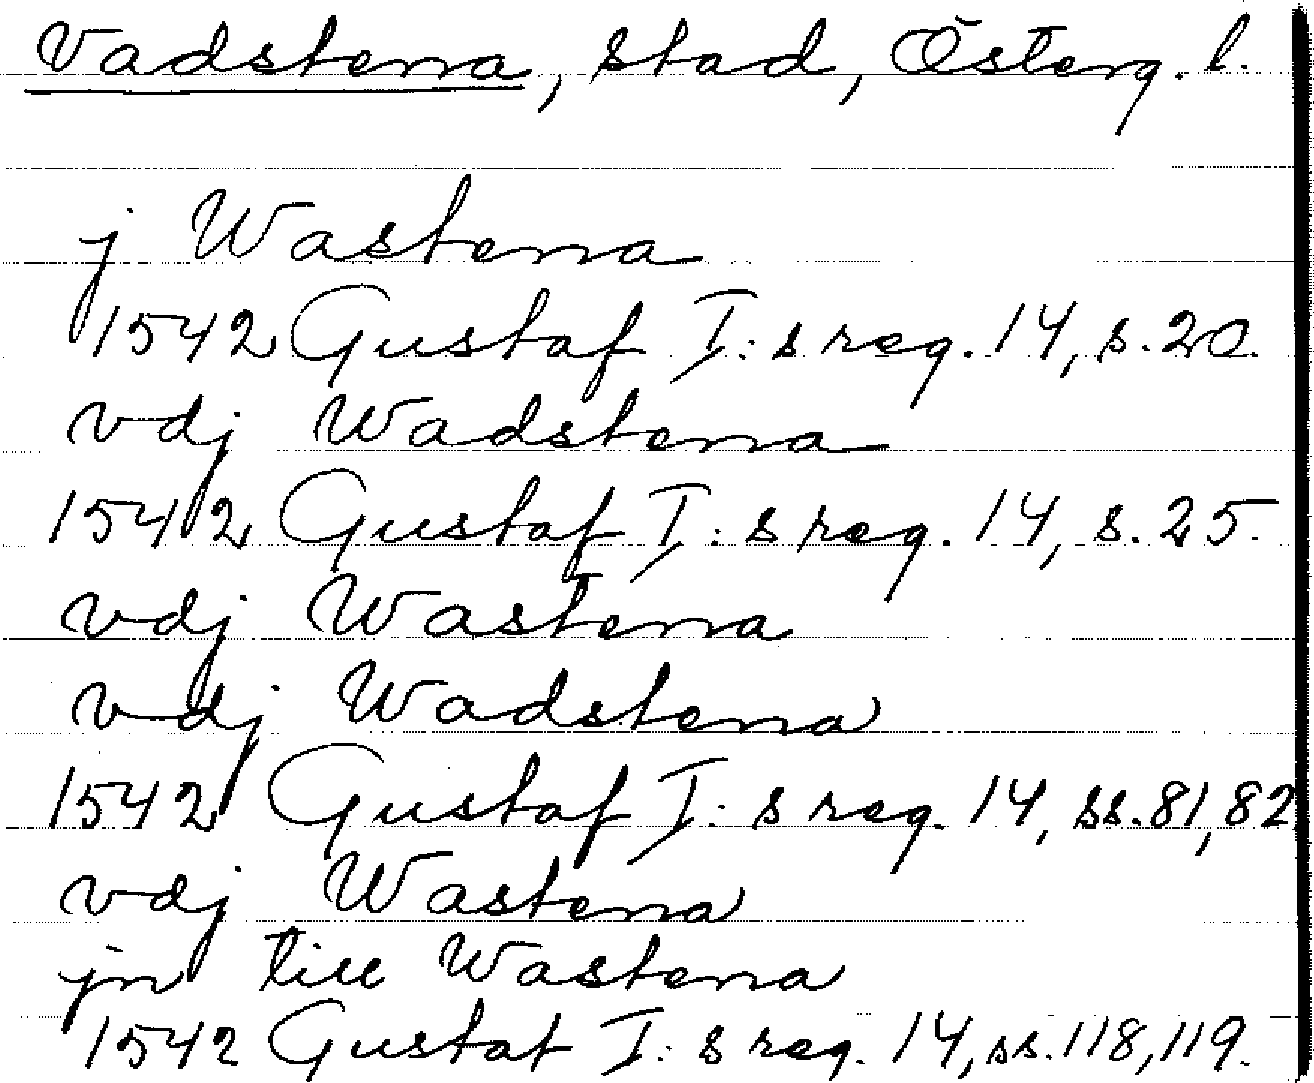 Vadstena, stad, Österg. l.
j Wastena
1542 Gustaf I:s reg. 14, s. 20.
vdj Wadstena
1542 Gustaf I:s reg. 14, s. 25.
vdj Wastena
vdj Wadstena
1542 Gustaf I:s reg. 14, ss. 81, 82
vdj Wastena
jn till Wastena
1542 Gustaf I:s reg. 14, ss. 118, 119.